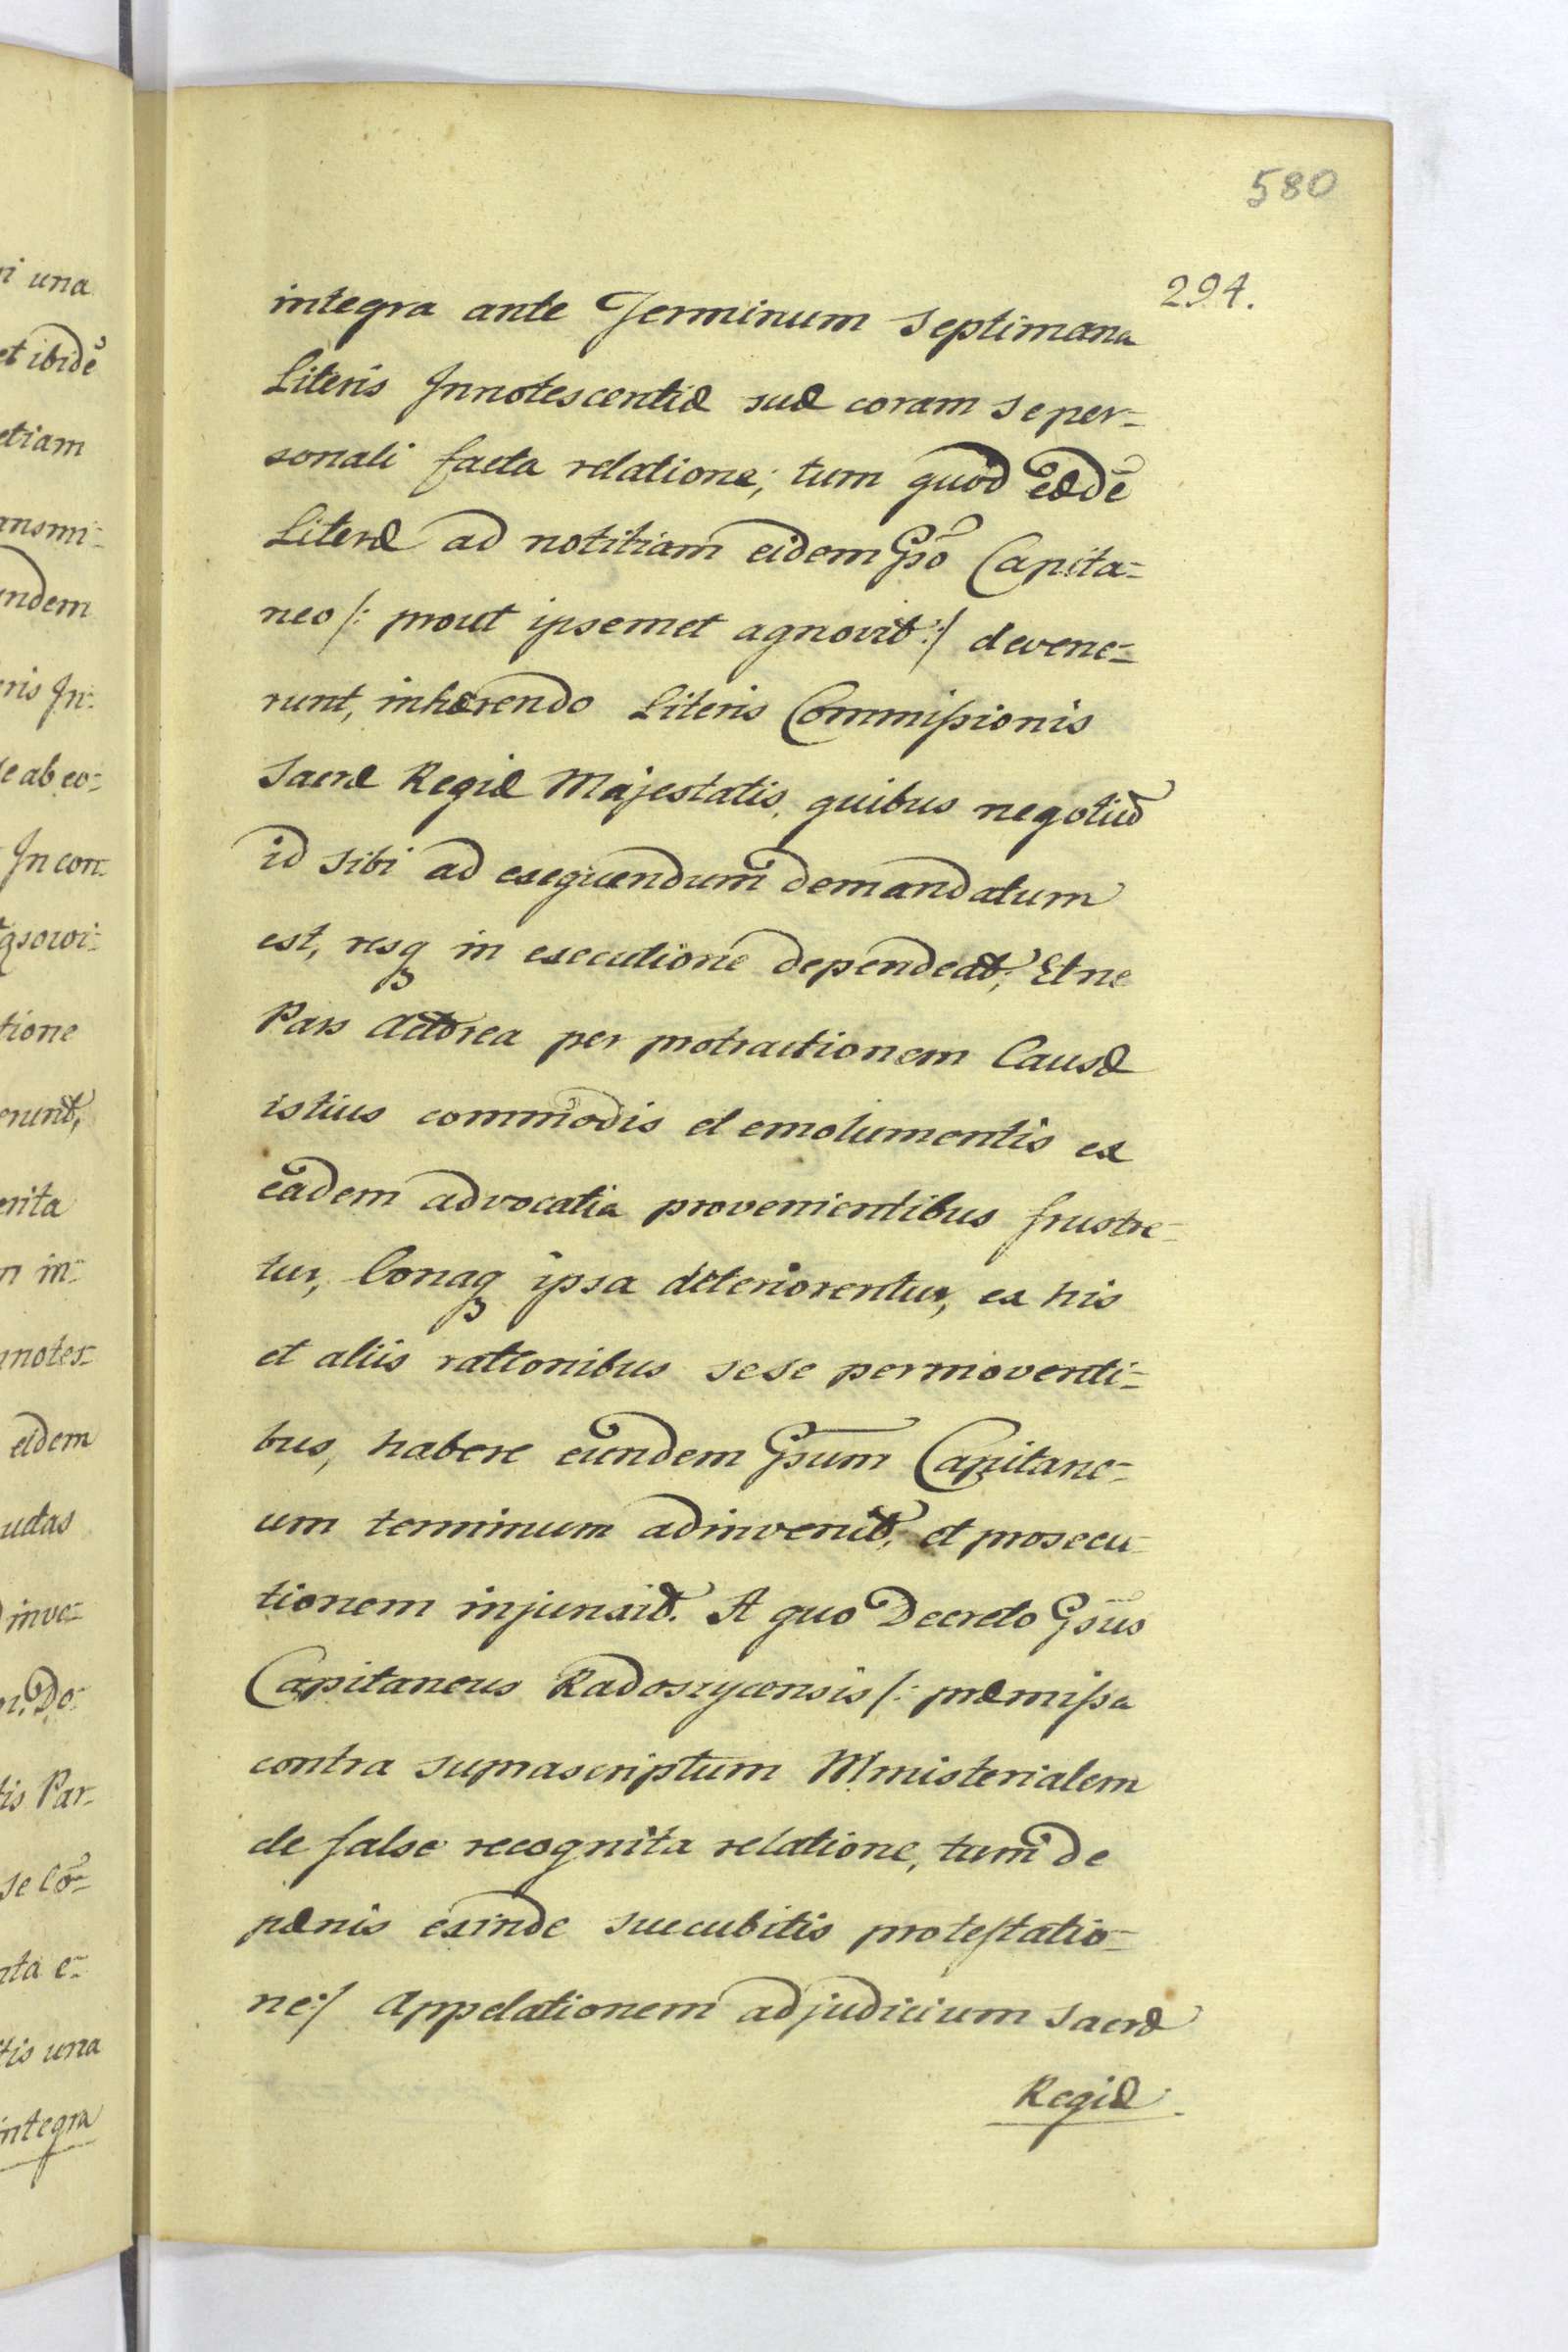 580
294.
integra ante Terminum septimana
Literis Innotescentiæ suæ coram se per-
sonali facta relatione; tum quod eædē
Literæ ad notitiam eidem Gso Capita-
neo /: prout ipsemet agnovit :/ devene-
runt, inhærendo Literis Commissionis
Sacræ Regiæ Majestatis, quibus negotiū
id sibi ad exequendum demandatum
est, resq in executione dependeat; Et ne
Pars Actorea per protractionem Causæ
istius commodis et emolumentis ex
eadem advocatia provenientibus frustre-
tur, bonaq ipsa deteriorentur, ex his
et aliis rationibus sese permoventi-
bus, habere eundem Gsum Capitane-
um terminum adinvenit, et prosecu-
tionem injunxit. A quo Decreto Gsus
Capitaneus Radoszycensis /: præmissa
contra suprascriptum Ministerialem
de false recognita relatione, tum de
pænis exinde succubitis protestatio-
ne :/ Appelationem ad judicium Sacræ
Regiæ
i una
et ibidē
etiam
ansmi-
ndem
ris In-
e ab eo-
In con-
qsowi-
tione
erunt,
erita
n in-
nnotes-
eidem
udas
inve-
r. Do-
tis Par-
se Cō-
nta e-
tis una
integra